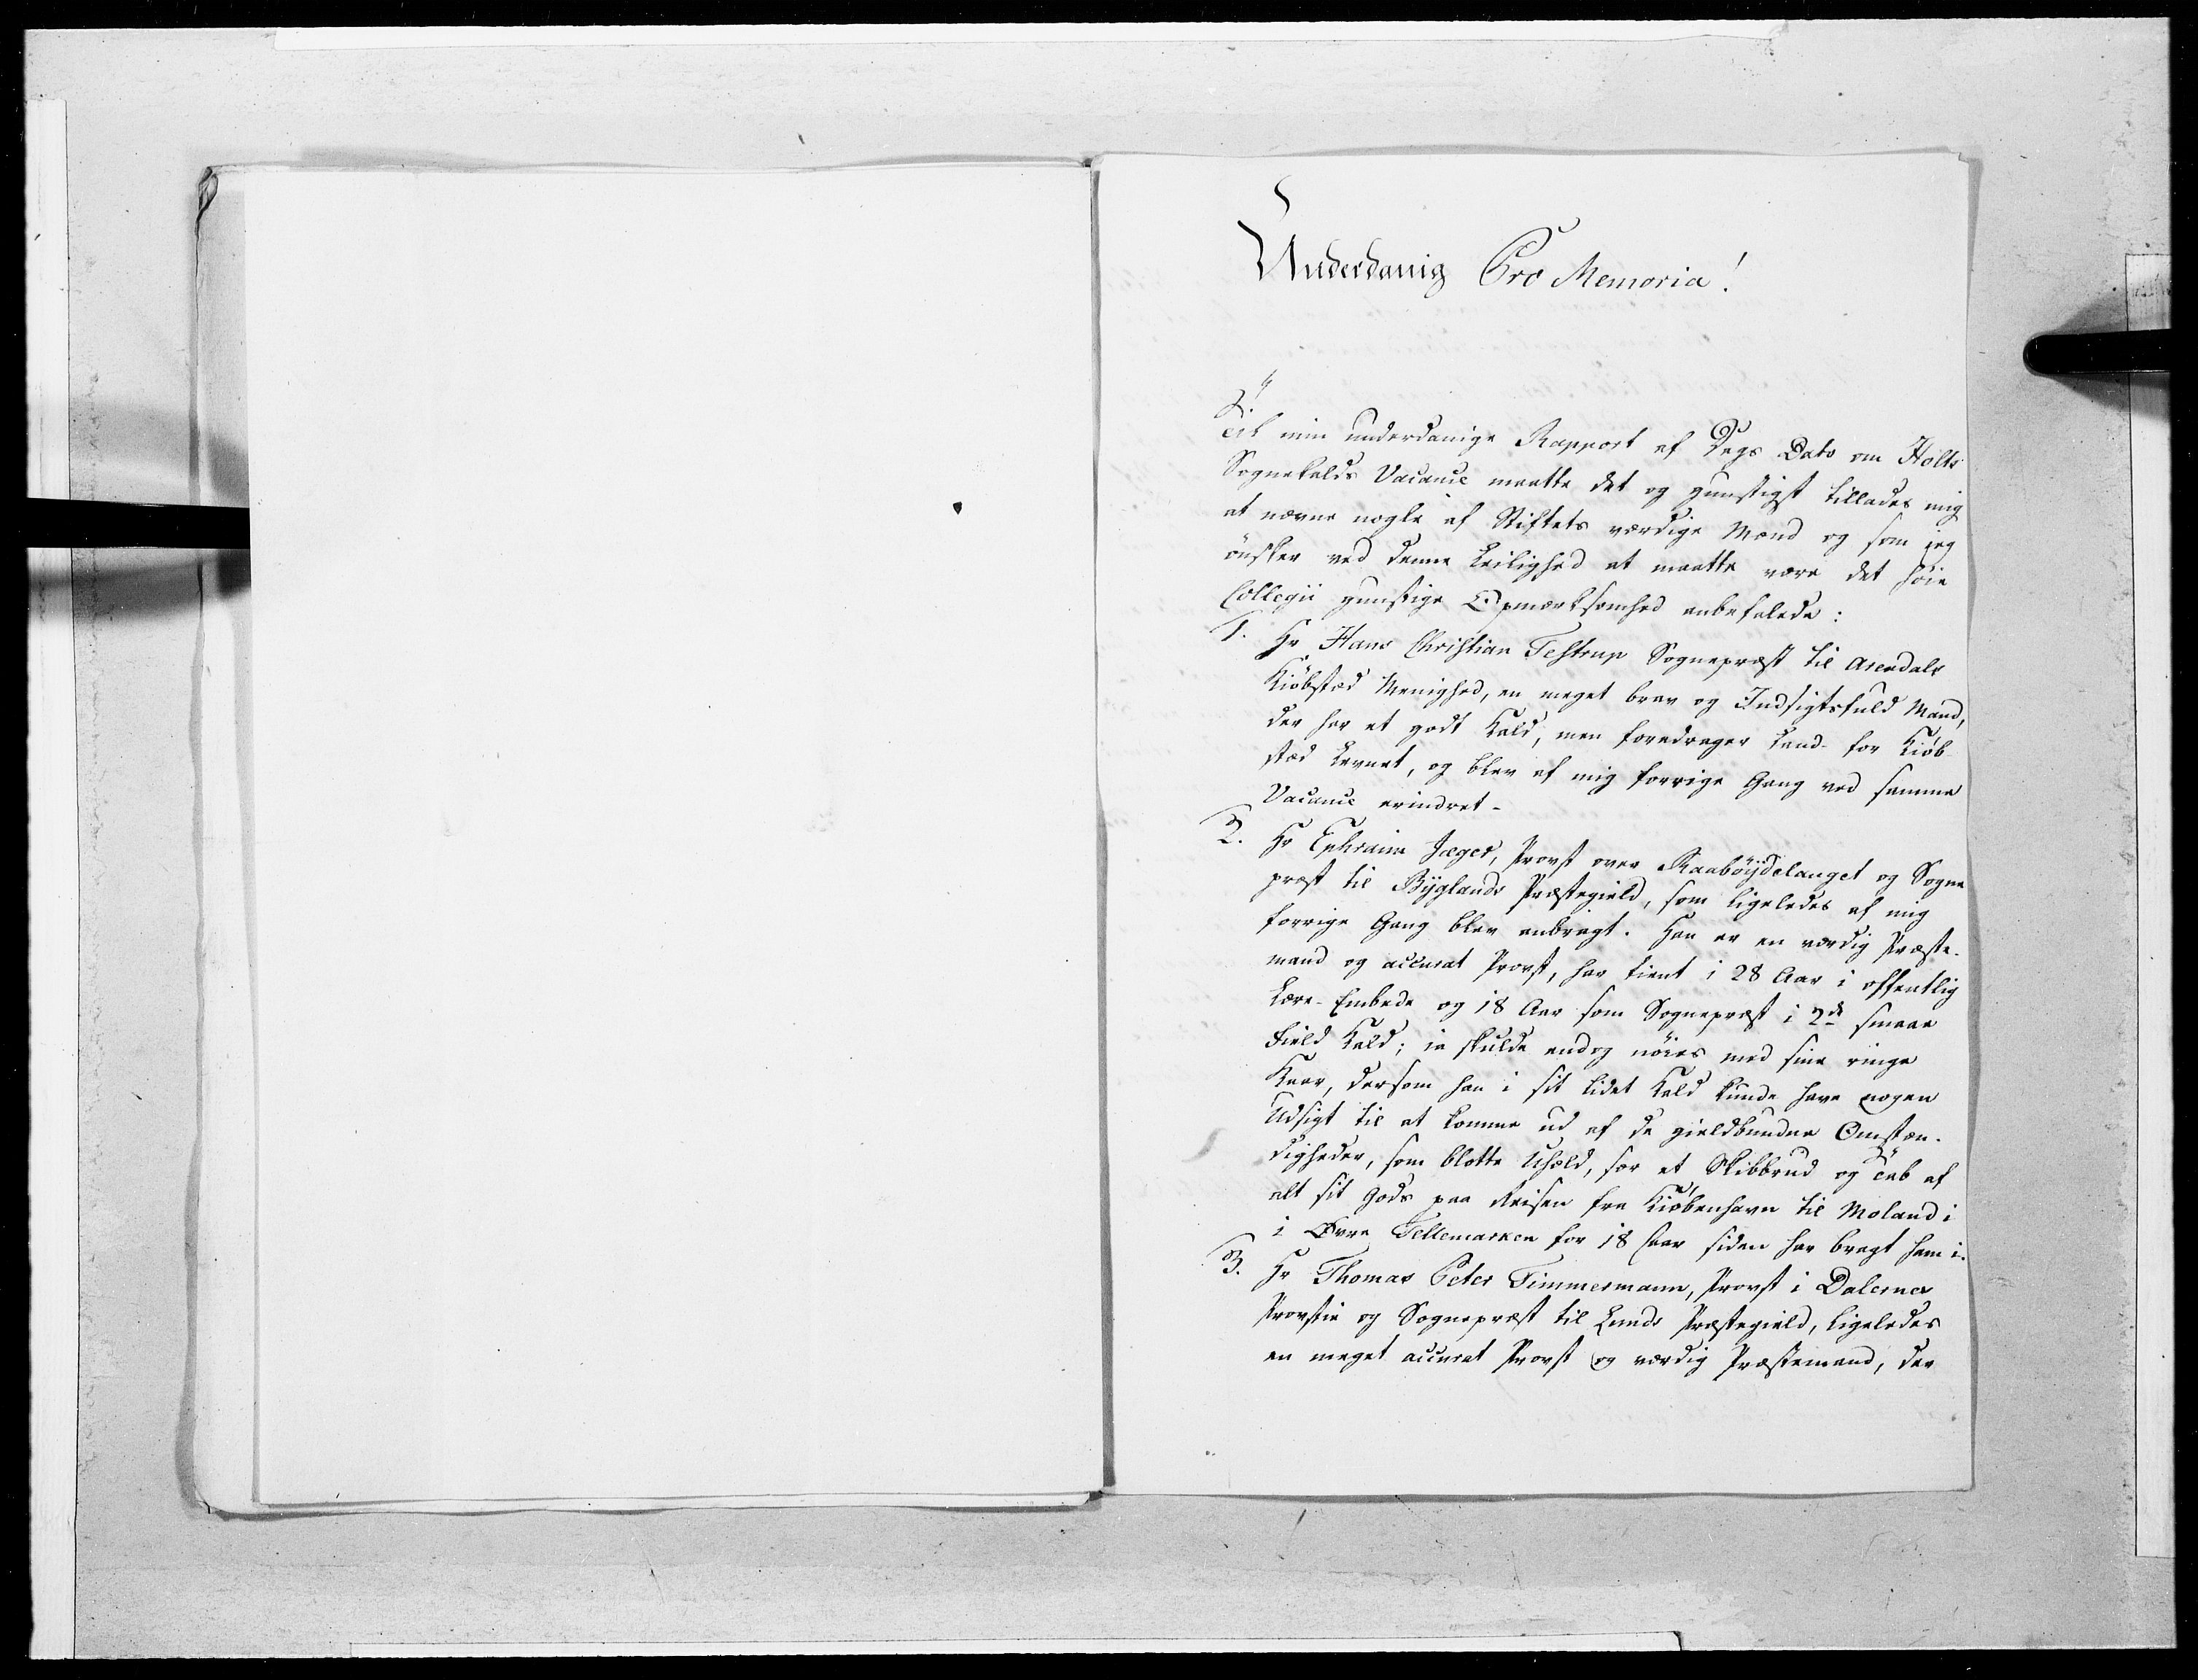 Underdanig Pro Memoria!
Til min underdanige Rapport af Dags Dato om Holts
Sognekalds Vacance maatte det og gunstigst tillades mig
at nævne nogle af Stiftets værdige Mænd og som jeg
ønsker ved denne Leilighed at maatte være det høie
Collegii gunstige Opmærksomhed anbefalede:
1. Hr Hans Christian Testrup Sognepræst til Arendals
Kiöbstæd Menighed, en meget brav og Indsigtsfuld Mand,
der har et godt Kald, men foredrager Land- for Kiöb-
stæd Levnet, og blev af mig forrige Gang ved samme
Vacance erindret -
2. Hr Ephraim Jæger, Provst over Raaböÿdelauget og Sogne
præst til Bÿglands Præstegield, som ligeledes af mig
forrige Gang blev anbragt. Han er en værdig Præste-
mand og accurat Provst, har tient i 28 Aar i offentlig
Lære-Embede og 18 Aar som Sognepræst i 2de smaae
Field Kald; ia skulde endog nöies med sine ringe
Kaar, dersom han i sit lidet Kald kunde have nogen
Udsigt til at komme ud af de gieldbundne Omstæn-
digheder, som blotte Uheld, saa et Skibbrud og Tab af
alt sit Gods paa Reisen fra Kiöbenhavn til Moland i
i Øvre Tellemarken for 18 Aar siden har bragt ham i.
3. Hr Thomas Peter Timmermann, Provst i Dalernes
Provstie og Sognepræst til Lunds Præstegield, ligeledes
en meget accurat Provst og værdig Præstemand, der